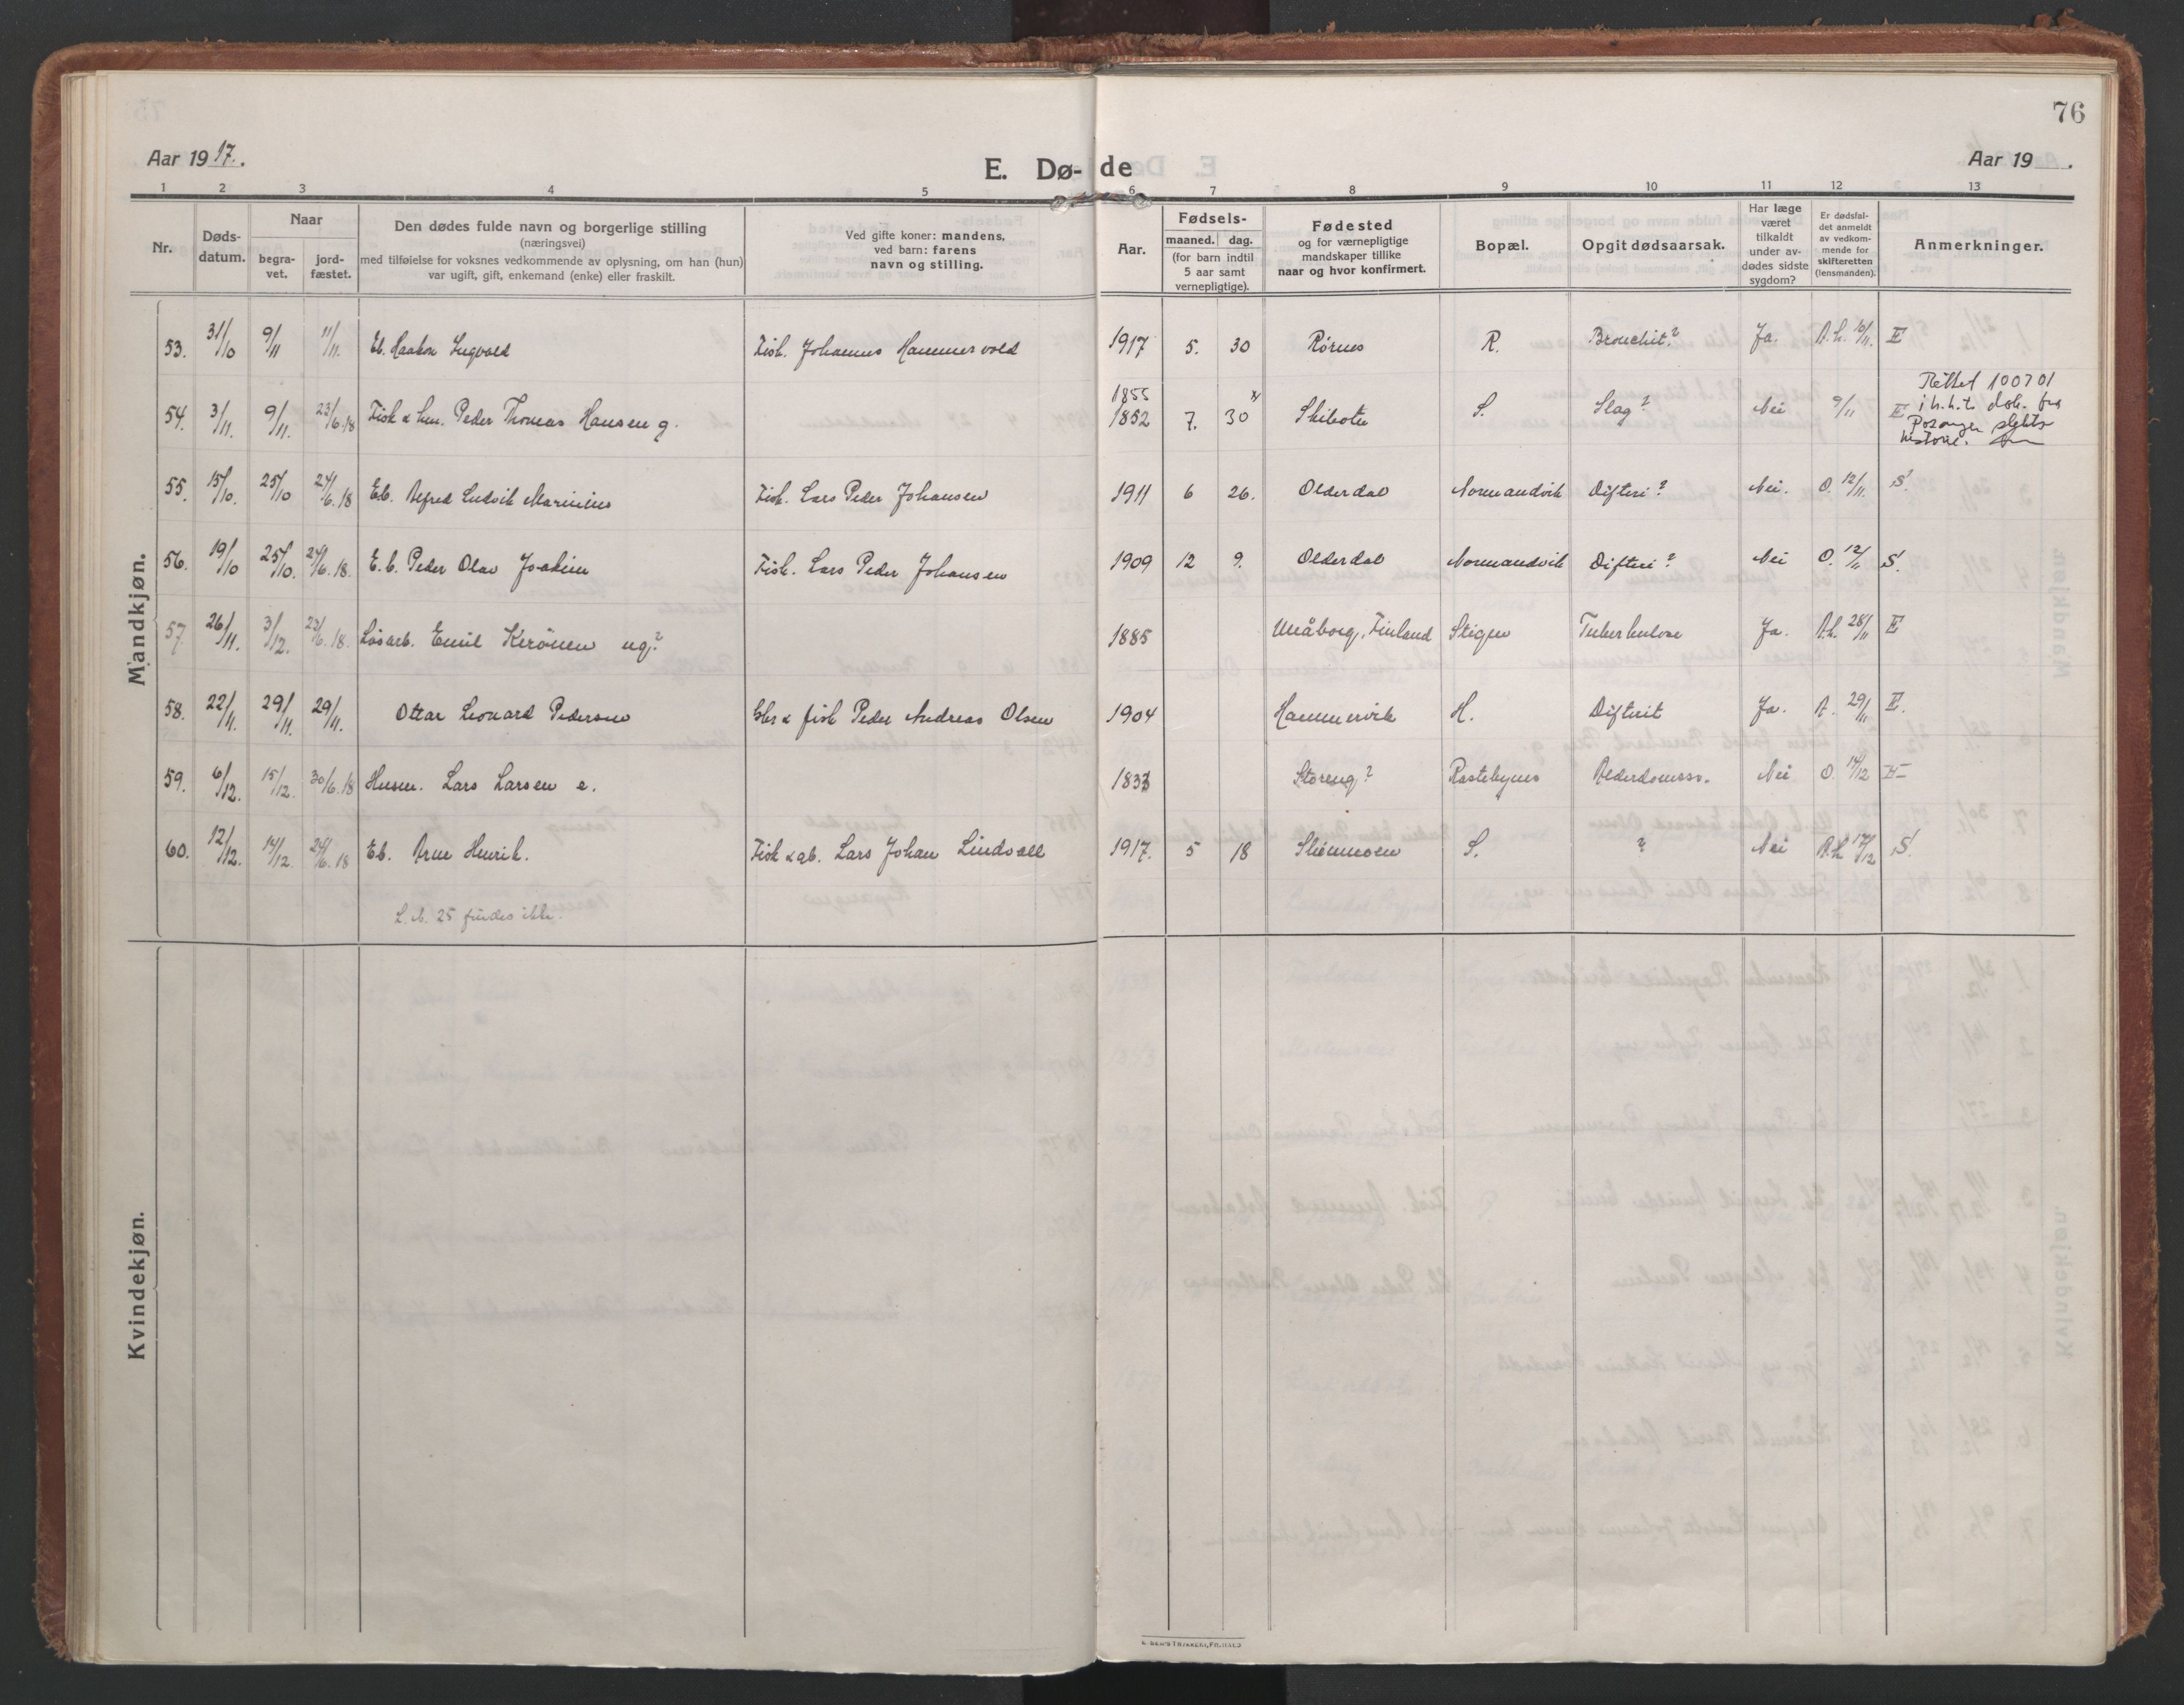 76
Aar 1917.
E. Dø-de
Aar 19 .
1 2 3 4 5 6 7 8 9 10 11 12 13
Nr.
Døds-
datum.
Naar
begra-
vet.
jord-
fæstet.
Den dødes fulde navn og borgerlige stilling
(næringsvei)
med tilføielse for voksnes vedkommende av oplysning, om han (hun)
var ugift, gift, enkemand (enke) eller fraskilt.
Ved gifte koner: mandens,
ved barn: farens
navn og stilling.
Aar.
Fødsels-
maaned. dag.
(for barn indtil
5 aar samt
vernepligtige).
Fødested
og for værnepligtige
mandskaper tillike
naar og hvor konfirmert.
Bopæl.
Opgit dødsaarsak.
Har læge
været
tilkaldt
under av-
dødes sidste
sygdom?
Er dødsfal-
det anmeldt
av vedkom-
mende for
skifteretten
(lensmanden).
Anmerkninger.
Mandkjøn.
53. 31/10 9/11 11/11. Eb. Haakon Ingvald Fisk. Johannes Hammervold 1917 5. 30 Rörnes R. Bronchit? Ja. A.L. 10/11. E
54. 3/11. 9/11. 23/6.18 Fisk & hm. Peder Thomas Hansen g. 1855 1852 7. 30 Skibotn S. Slag? Nei 9/11 E
Rettet 100701
i h.h.t. dok. fra
Porsanger slekts
historie.
55. 15/10. 25/10 24/6.18 Eb. Alfred Ludvik Marinius Fisk. Lars Peder Johansen 1911 6 26. Olderdal Normandvik Difteri? Nei. O. 12/11. S.
56. 19/10 25/10. 24/6.18. E.b. Peder Olav Joakim Fisk. Lars Peder Johansen 1909 12 9. Olderdal Normandvik Difteri? Nei O. 12/11 S.
57. 26/11. 3/12. 23/6.18. Lösarb. Emil Kerönen ug? 1885 Uleåborg, Finland Stigen Tuberkulose Ja. A.L. 28/11 E
58. 22/11. 29/11. 29/11. Ottar Leonard Pedersen Gbr & fisk Peder Andreas Olsen 1904 Hammervik H. Difterit Ja. A. 29/11 E.
59. 6/12. 15/12. 30/6.18 Husm. Lars Larsen e. Storeng? Rastebynes Alderdomssv. Nei O. 14/12 E
60. 12/12. 14/12. 24/6.18 Eb. Arne Henrik. Fisk & gb. Lars Johan Lindvall 1917. 5 18 S. ? Nei A.L 17/12 S.
L. N. 25 findes ikke.
Kvindekjøn.